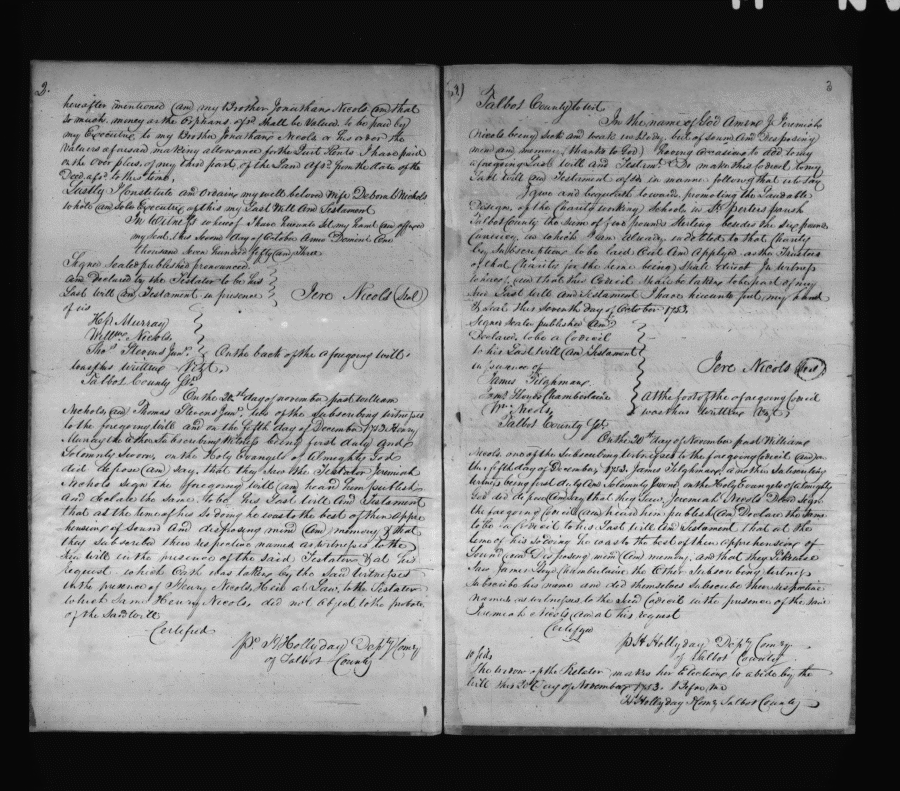 2.
hereafter mentioned and my Brother Jonathan Nicols and that
so much money as the Orphans afsd shall be Valued to be paid by
my Executrix to my Brother Jonathan Nicols or his order the
Valuers afsaid making allowance for the Quit Rents I have paid
on the Over plus of my third part of the Land afsd from the date of the
Deed afsd to this time
Lastly I Constitute and Ordain my well beloved Wife Deborah Nichols
whole and Sole Executrix of this my Last Will And Testament
In Witness whereof I have hereunto set my hand and affixed
my seal this Second day of October Anno Domini One
thousand Seven hundred fifty and three
Signed sealed published pronounced
and Declared by the Testator to be his
Last Will and Testament in presence
of us
Jere Nicols (Seal)
Hy Murray
Willm Nicols
Thos Stevens Junr
On the back of the aforegoing will
was thus written Vizt
Talbot County Ss
On the 20th day of November past William
Nichols and Thomas Stevens Junr two of the subscribing witnesses
to the foregoing will and on the fifth day of December 1753 Henry
Murray the other Subscribing Witness being first duly and
Solemnly Sworn on the Holy Evangels of Almighty God
did depose and say, that they saw the Testator Jeremiah
Nichols sign the foregoing will and heard him publish
and declare the same to be his Last Will And Testament
that at the time of his so doing he was to the best of their Appre
hensions of sound And disposing mind and memory & that
they subscribed their respective names as witnesses to the
said will in the presence of the said Testator & at his
request which Oath was taken by the said witnesses
in the presence of Henry Nicols Heir at Law to the Testator
which same Henry Nicols did not object to the probate
of the said will
Certified
Pr H Hollyday Depty Comry
of Talbot County
3
Talbot County to wit
In the name of God Amen I Jeremiah
Nicols being sick and weak in body but of sound And Disposing
mind and memory (thanks to God) having occasion to add to my
aforegoing Last Will and Testimt Do make this Codicil to my
Last Will and Testiment afsd in manner following that is to say
I give and bequeath towards promoting the Laudable
Designs of the Charity working Schools in St Peters parish
Talbot County the sum of five pounds sterling besides the six pounds
Currency in which I am already indebted to that Charity
by Subscription to be laid Out And Applyed as the Trustees
of that Charity for the time being shall direct In witness
whereof and that this Codicil shall be taken to be part of my
said Last Will and Testament I have hereunto put my hand
& seal this Seventh day of October 1753
Signed sealed published And
Declared to be a Codicil
to his Last Will and Testament
in presence of
Jere Nicols (Seal)
James Tilghman
Jams Lloyd Chamberlaine
Wm Nicols
At the foot of the aforegoing Codicil
was thus Written Vizt
Talbot County Ss
On the 20th day of November past William
Nicols one of the subscribing witnesses to the foregoing Codicil and on
the fifth day of December 1753 James Tilghman another Subscribing
witness being first duly And Solemnly sworn on the Holy Evangels of almighty
God did depose and say that they saw Jeremiah Nicols Decd sign
the foregoing Codicil and heard him publish and Declare the same
to be a Codicil to his Last will and Testament that at the
time of his so doing he was to the best of their Apprehensions of
Sound and Disposing mind and memory and that they likewise
saw James Lloyd Chamberlaine the Other Subscribing witness
subscribe his name and did themselves subscribe their respective
names as witnesses to the said Codicil in the presence of the said
Jeremiah Nicols and at his request
Certifyd
Pr H Hollyday Depty Comry
of Talbot County
The widow of the Testator makes her Election to abide by the
Will this 20th day of November 1753. Before me
H Hollyday Comry Talbot County